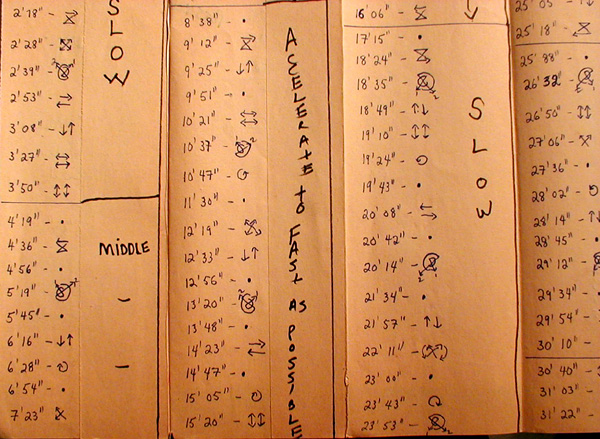 2'18" -
2'28" -
2'39" -
2'53" -
3'08" - ↓↑
3'27" -
3'50" - ↕↕
SLOW
4'19" - •
4'36" -
4'56" - •
5'19" -
5'45" - •
6'16" - ↓↑
6'28" -
6'54" - •
7'23" -
MIDDLE
–
–
8'38" - •
9'12" -
9'25" - ↓↑
9'51" - •
10'21" -
10'37" -
10'47" -
11'30" - •
12'19" -
12'33" - ↓↑
12'56" - •
13'20" -
13'48" - •
14'23" -
14'47" - •
15'05" -
15'20" - ↕↕
ACELERATE to FAST AS POSSIBLE
16'06" -
17'15" - •
18'24" -
18'35" -
18'49" - ↑↓
19'10" - ↕↕
19'24" -
19'43" - •
20'08" -
20'42" - •
20'14" -
21'34" - •
21'57" - ↑↓
22'11" -
23'00" - •
23'43" -
23'53" -
SLOW
25'05" - ↑↓
25'18" -
25'88" - •
26'32" -
26'50" - ↕↕
27'06" -
27'36" - •
28'02" -
28'14" - ↑↓
28'45" - •
29'12" -
29'34" - •
29'54" -
30'10" -
30'40" -
31'03" -
31'22" -